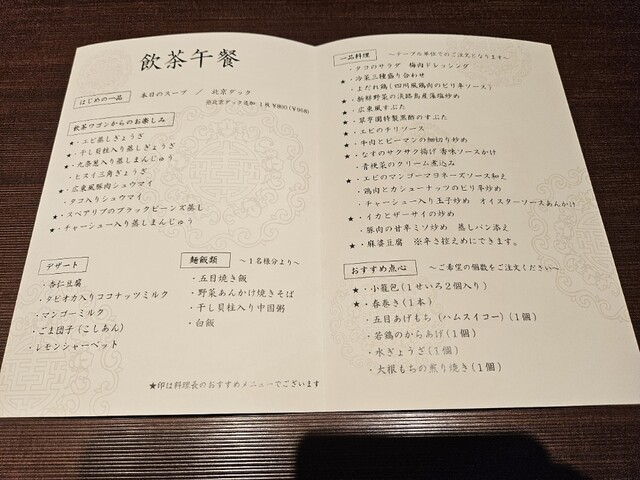 飲茶午餐
はじめの一品
本日のスープ ／ 北京ダック
※北京ダック追加 1枚 ¥800(¥968)
飲茶ワゴンからのお楽しみ
★・エビ蒸しぎょうざ
★・干し貝柱入り蒸しぎょうざ
★・九条葱入り蒸しまんじゅう
・ヒスイ三角ぎょうざ
★・広東風豚肉シュウマイ
・タコ入りシュウマイ
★・スペアリブのブラックビーンズ蒸し
★・チャーシュー入り蒸しまんじゅう
デザート
・杏仁豆腐
・タピオカ入りココナッツミルク
・マンゴーミルク
・ごま団子(こしあん)
・レモンシャーベット
麺飯類 ～1名様分より～
・五目焼き飯
・野菜あんかけ焼きそば
・干し貝柱入り中国粥
・白飯
★印は料理長のおすすめメニューでございます
一品料理 ～テーブル単位でのご注文となります～
・タコのサラダ 梅肉ドレッシング
★・冷菜三種盛り合わせ
★・よだれ鶏(四川風鶏肉のピリ辛ソース)
・新鮮野菜の淡路島産藻塩炒め
★・広東風すぶた
★・翠亨園特製黒酢のすぶた
・エビのチリソース
★・牛肉とピーマンの細切り炒め
★・なすのサクサク揚げ 香味ソースかけ
・青梗菜のクリーム煮込み
★・エビのマンゴーマヨネーズソース和え
・鶏肉とカシューナッツのピリ辛炒め
・チャーシュー入り玉子炒め オイスターソースあんかけ
★・イカとザーサイの炒め
・豚肉の甘辛ミソ炒め 蒸しパン添え
★・麻婆豆腐 ※辛さ控えめにできます。
おすすめ点心 ～ご希望の個数をご注文ください～
★・小籠包(1せいろ2個入り)
★・春巻き(1本)
・五目あげもち(ハムスイコー)(1個)
・若鶏のからあげ(1個)
・水ぎょうざ(1個)
・大根もちの煎り焼き(1個)